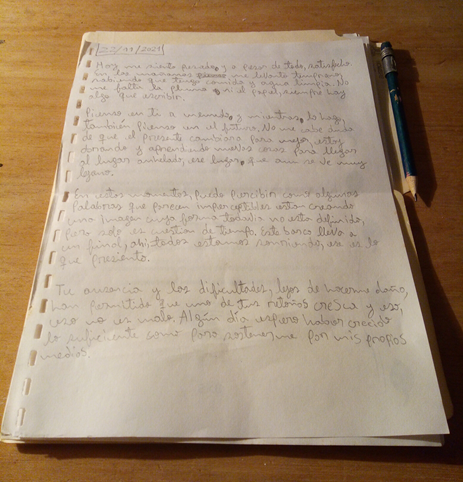 22/01/2021
Hoy me siento pesado, y a pesar de todo, satisfecho
en las mañanas me levanto temprano
sabiendo que tengo comida y agua limpia. No
me falta la pluma, ni el papel, siempre hay
algo que escribir.
Pienso en ti a menudo, y mientras lo hago,
también pienso en el futuro. No me cabe duda
de que el presente cambiara para mejor, estoy
donando y aprendiendo nuevas cosas para llegar
al lugar anhelado, ese lugar, que aun se ve muy
lejano.
En estos momentos, puedo percibir como algunas
palabras que parecen imperceptibles estan creando
una imagen cuya forma todavia no esta definida,
pero solo es cuestion de tiempo. Este barco lleva a
un final, ahi, todos estamos sonriendo, eso es lo
que presiento.
Tu ausencia y las dificultades, lejos de hacerme daño,
han permitido que uno de tus retoños crezca y eso,
eso no es malo. Algún día espero haber crecido
lo suficiente como para sostenerme por mis propios
medios.